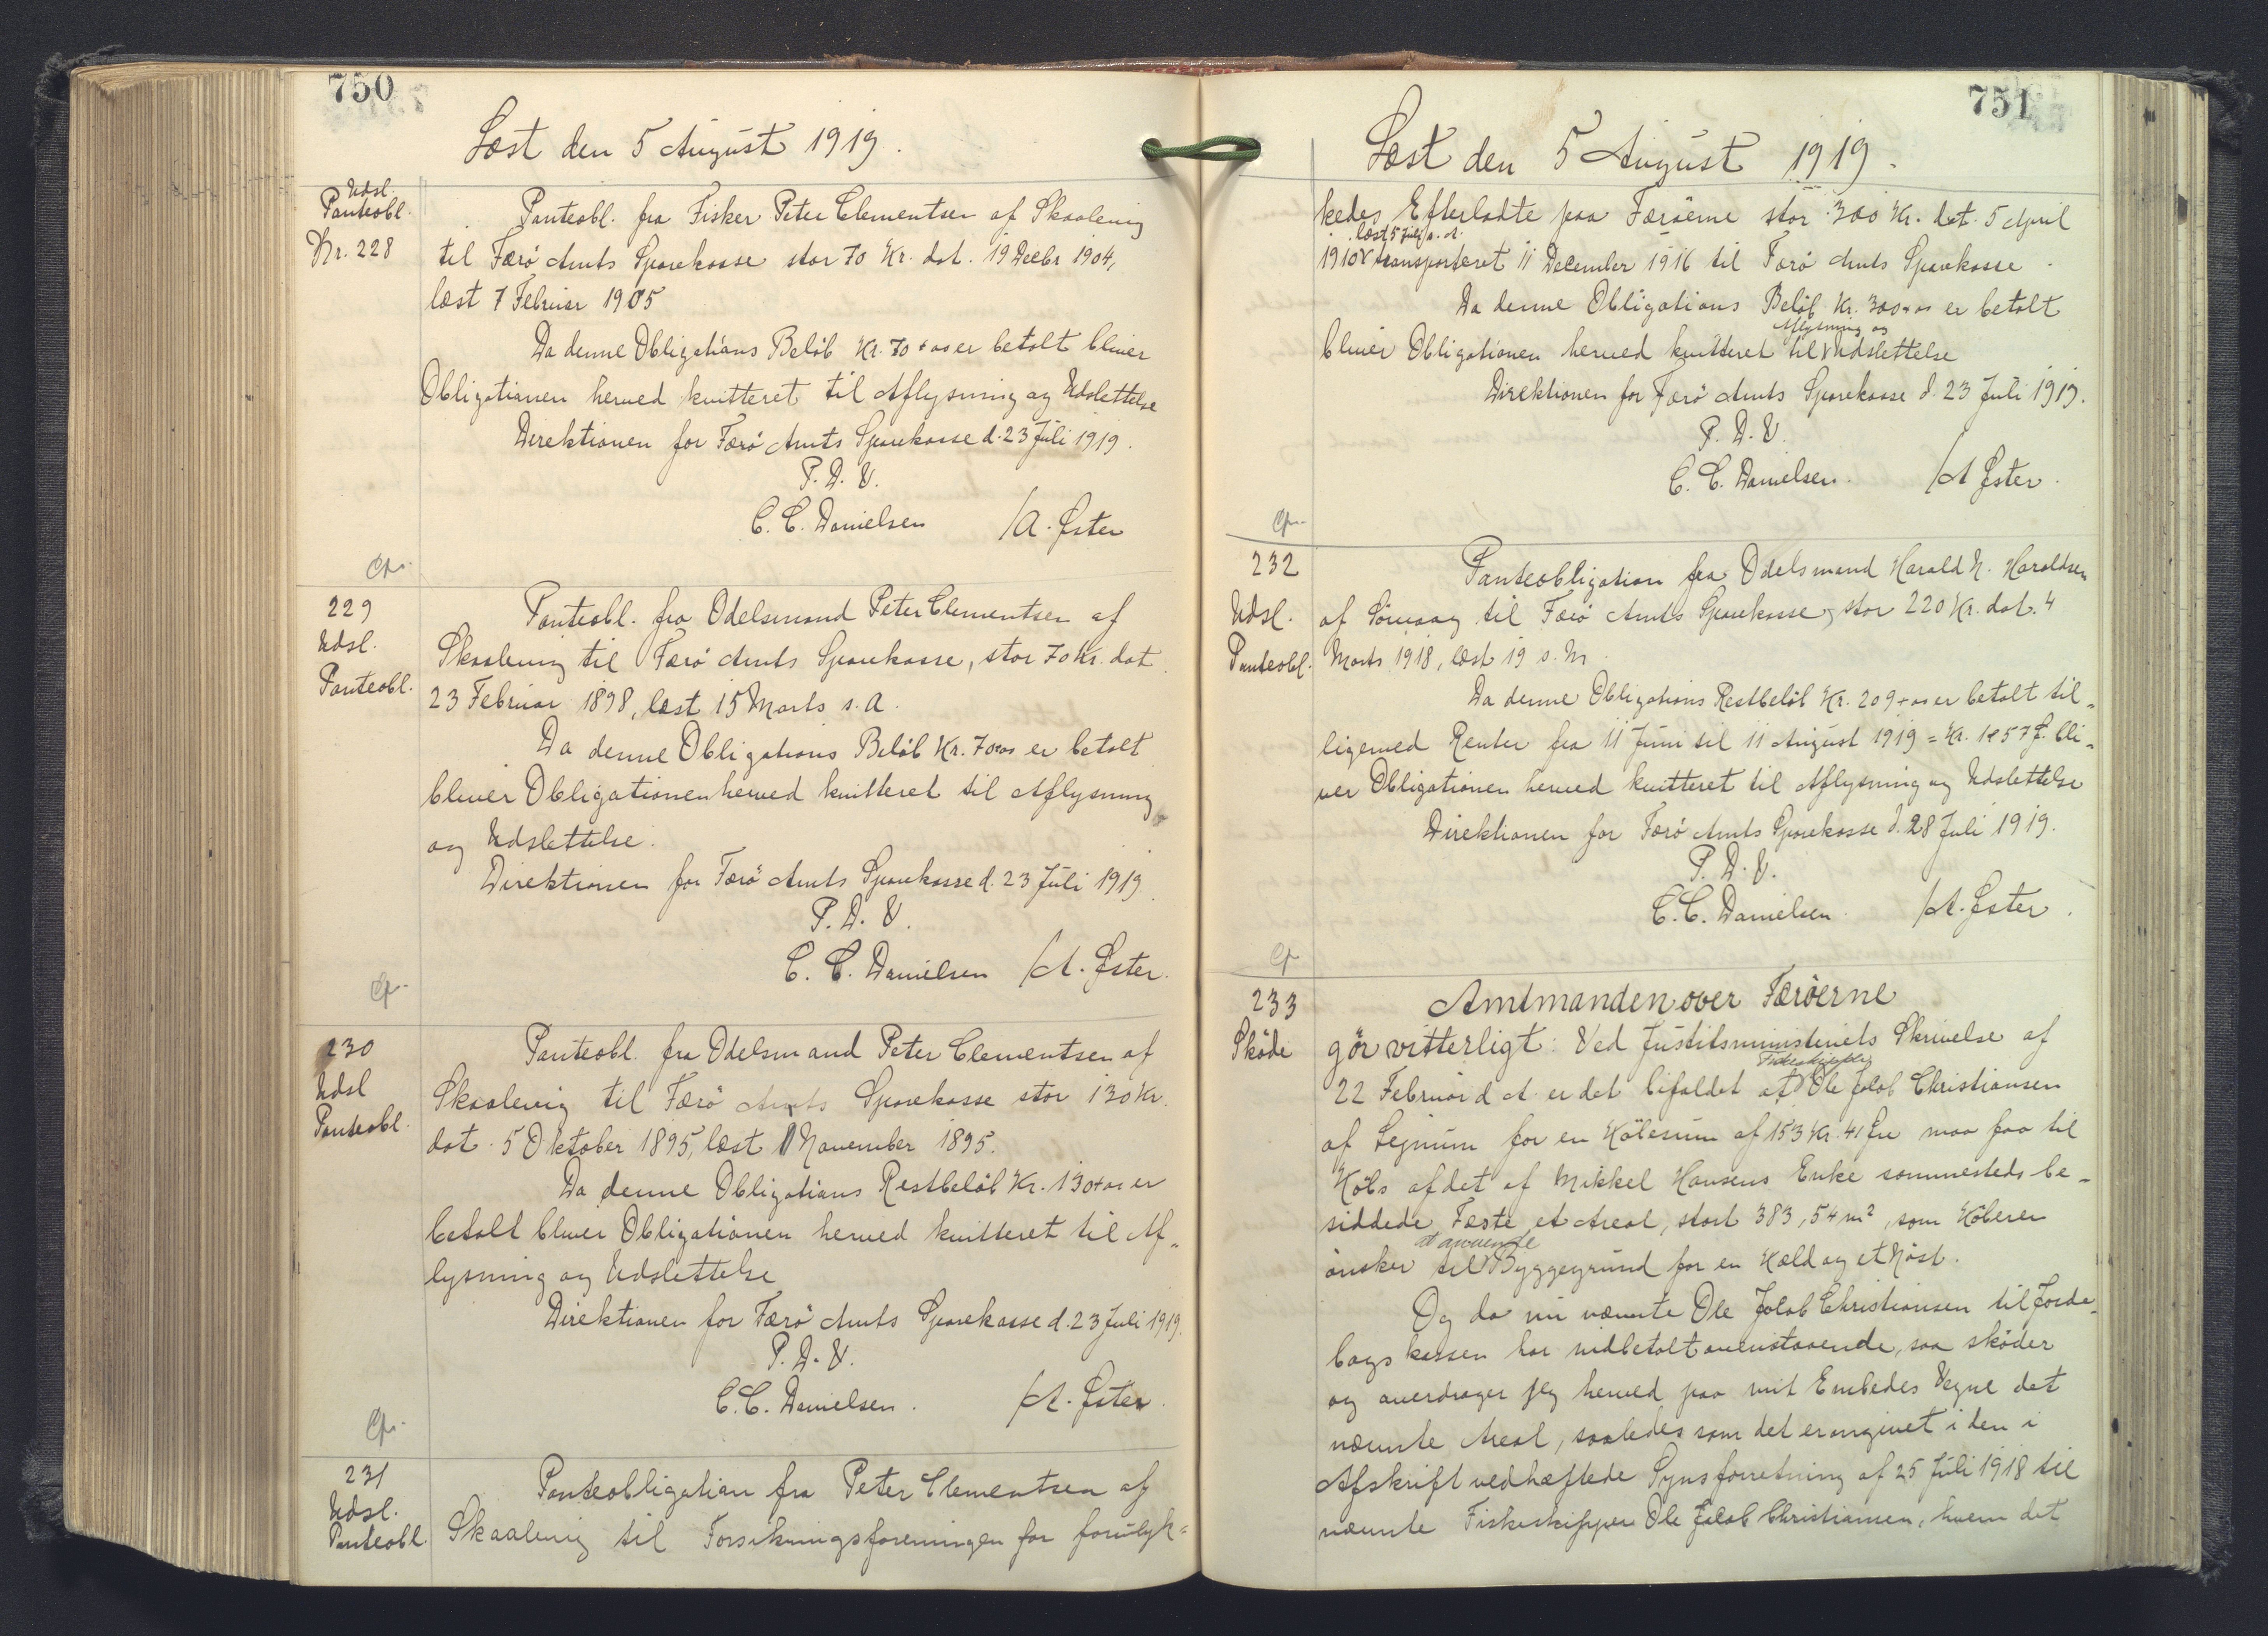 750
Læst den 5 August 1919.
Udsl.
Panteobl.
Nr. 228
Panteobl. fra Fisker Peter Clementsen af Skaalevig
til Færö Amts Sparekasse stor 70 Kr. dat. 19 Decbr 1904,
læst 7 Februar 1905
Da denne Obligations Belöb Kr. 70 + as er betalt bliver
Obligationen herved kvitteret til Aflysning og Udslettelse
Direktionen for Færö Amts Sparekasse d. 23 Juli 1919.
P. D. V.
C. C. Danielsen /A. Øster
Cfr.
229
Udsl.
Panteobl.
Panteobl. fra Odelsmand Peter Clementsen af
Skaalevig til Færö Amts Sparekasse, stor 70 Kr. dat
23 Februar 1898, læst 15 Marts s. A.
Da denne Obligations Belöb Kr. 70+as er betalt
bliver Obligationen herved kvitteret til Aflysning
og Udslettelse.
Direktionen for Færö Amts Sparekasse d. 23 Juli 1919.
P. D. V.
C. C. Danielsen /A. Øster.
Cfr.
230
Udsl
Panteobl.
Panteobl. fra Odelsmand Peter Clementsen af
Skaalevig til Færö Amts Sparekasse stor 130 Kr.
dat. 5 Oktober 1895, læst 1 November 1895.
Da denne Obligations Restbelöb Kr. 130+as er
betalt bliver Obligationen herved kvitteret til Af-
lysning og Udslettelse
Direktionen for Færö Amts Sparekasse d. 23 Juli 1919.
P. D. V.
C. C. Danielsen. /A. Øster.
Cfr.
231
Udsl.
Panteobl.
Panteobligation fra Peter Clementsen af
Skaalevig til Forsikringsforeningen for forulyk=
751
Læst den 5 August 1919.
kedes Efterladte paa Færöerne stor 300 Kr. dat. 5 April
læst 5 Juli s. A.
1910 transporteret 11 December 1916 til Færö Amts Sparekasse.
Da denne Obligations Belöb Kr. 300+as er betalt
Aflysning og
bliver Obligationen herved kvitteret til Udslettelse
Direktionen for Færö Amts Sparekasse d. 23 Juli 1919.
P. D. V.
C. C. Danielsen. /A Øster.
Cfr.
232
Udsl.
Panteobl.
Panteobligation fra Odelsmand Harald N. Haraldsen
af Sörvaag til Færö Amts Sparekasse, stor 220 Kr. dat. 4
Marts 1918, læst 19 s. M
Da denne Obligations Restbelöb Kr. 209+as er betalt til-
ligemed Renter fra 11 Juni til 11 August 1919 = Kr. 1+57 f. bli-
ver Obligationen herved kvitteret til Aflysning og Udslettelse
Direktionen for Færö Amts Sparekasse d. 28 Juli 1919.
P. D. V.
C. C. Danielsen /A. Øster.
Cfr
233
Sköde
Amtmanden over Færöerne
gör vitterligt: Ved Justitsministeriets Skrivelse af
Fiskeskipper
22 Februar d A er det bifaldet at Ole Jakob Christiansen
af Lejnum for en Köbesum af 153 Kr. 41 Øre maa faa til
Köbs af det af Mikkel Hansens Enke sammesteds be-
siddede Fæste et Areal, stort 383,54 m², som Köberen
at anvende
önsker til Byggegrund for en Kæld og et Nöst.
Og da nu nævnte Ole Jakob Christiansen til Jorde-
bogskassen har indbetalt ovenstaaende, saa sköder
og overdrager jeg herved paa mit Embedes Vegne det
nævnte Areal, saaledes som det er angivet i den i
Afskrift vedhæftede Synsforretning af 25 Juli 1918 til
nævnte Fiskeskipper Ole Jakob Christiansen, hvem det